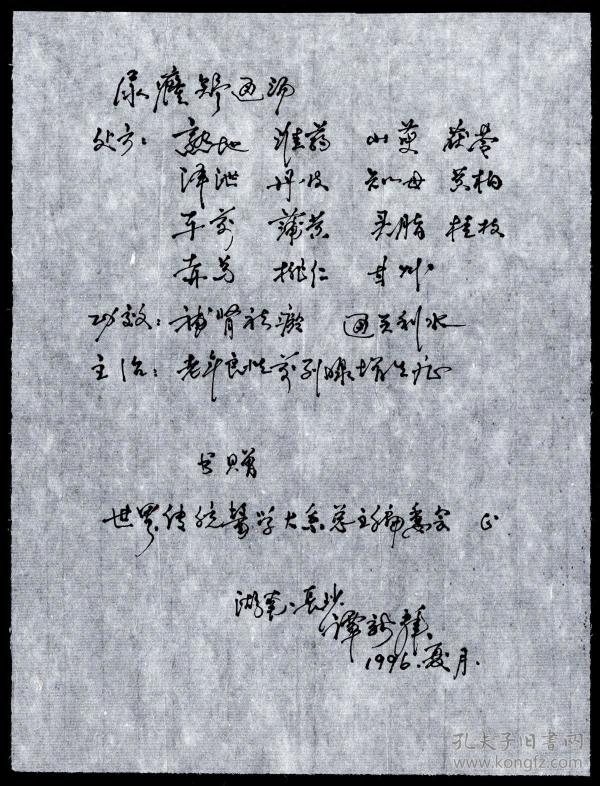 尿癃舒通汤
处方：熟地 淮药 山萸 茯苓
泽泄 丹皮 知母 黄柏
车前 蒲黄 桂枝
赤芍 桃仁 甘草
功效：补肾祛瘀 通关利水
主治：老年良性前列腺增生症
书赠
世界传统醫学大系总主编委会 正
湖南·長沙
谭新華
1996.夏月.
孔夫子旧書网
www.kongfz.com